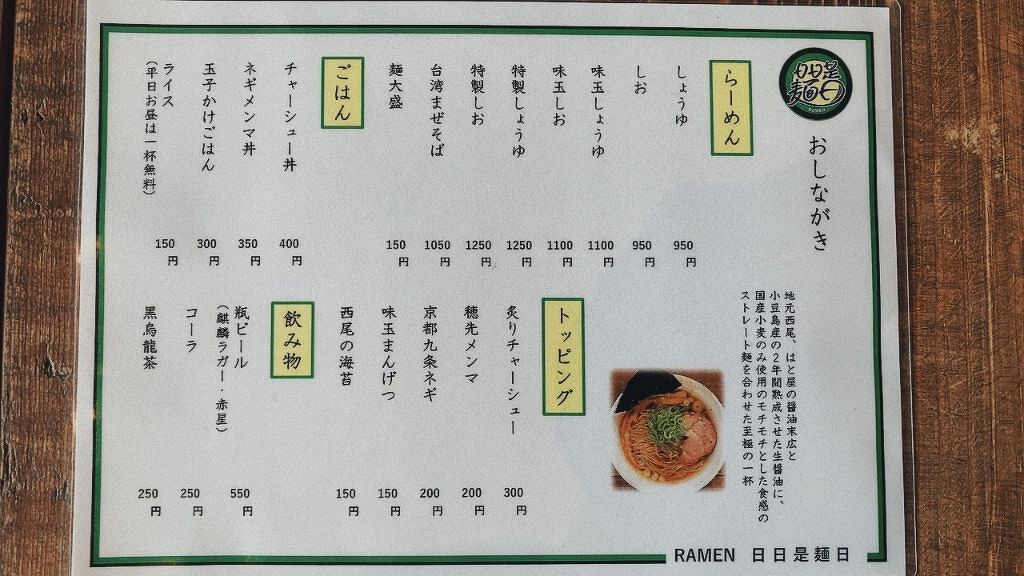 日日是麺日
RAMEN
おしながき
らーめん
しょうゆ 950円
しお 950円
味玉しょうゆ 1100円
味玉しお 1100円
特製しょうゆ 1250円
特製しお 1250円
台湾まぜそば 1050円
麺大盛 150円
ごはん
チャーシュー丼 400円
ネギメンマ丼 350円
玉子かけごはん 300円
ライス 150円
(平日お昼は一杯無料)
地元西尾、はと屋の醤油末広と
小豆島産の2年間熟成させた生醤油に、
国産小麦のみ使用のモチモチとした食感の
ストレート麺を合わせた至極の一杯
トッピング
炙りチャーシュー 300円
穂先メンマ 200円
京都九条ネギ 200円
味玉まんげつ 150円
西尾の海苔 150円
飲み物
瓶ビール 550円
(麒麟ラガー・赤星)
コーラ 250円
黒烏龍茶 250円
RAMEN 日日是麺日